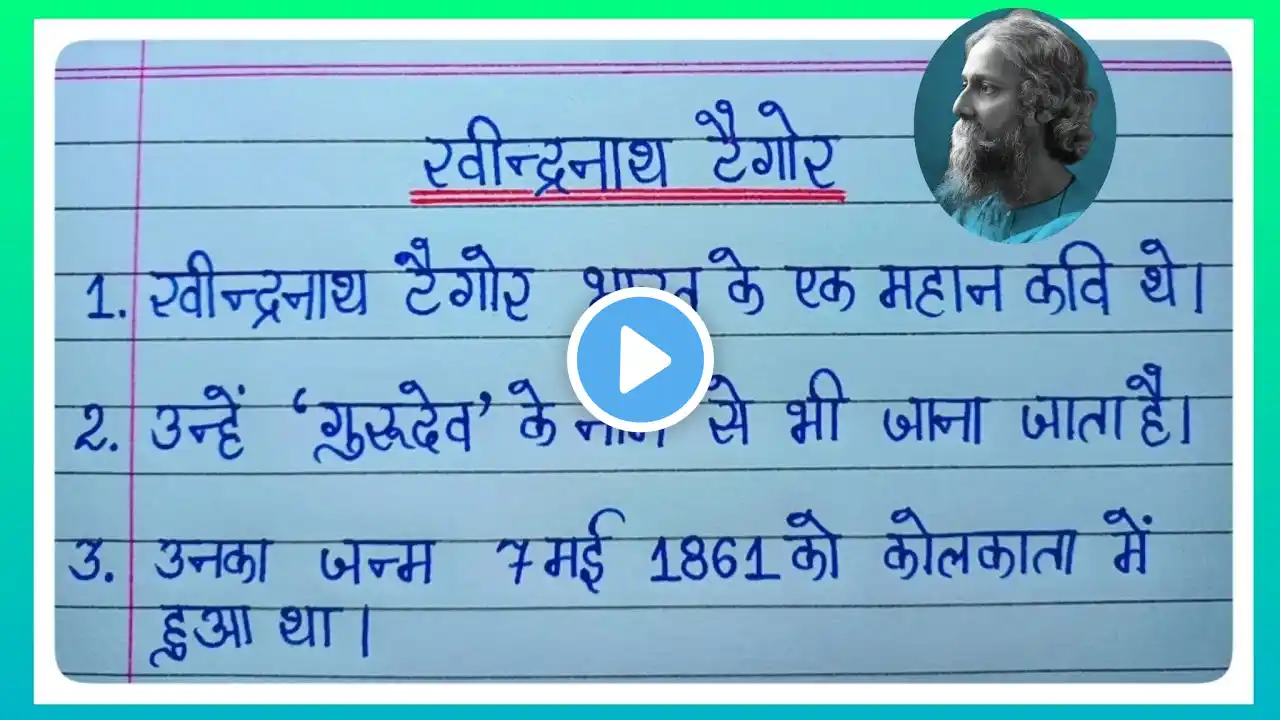 रवीन्द्रनाथ टैगोर
1. रवीन्द्रनाथ टैगोर भारत के एक महान कवि थे।
2. उन्हें ‘गुरूदेव’ के नाम से भी जाना जाता है।
3. उनका जन्म 7 मई 1861 को कोलकाता में
हुआ था।